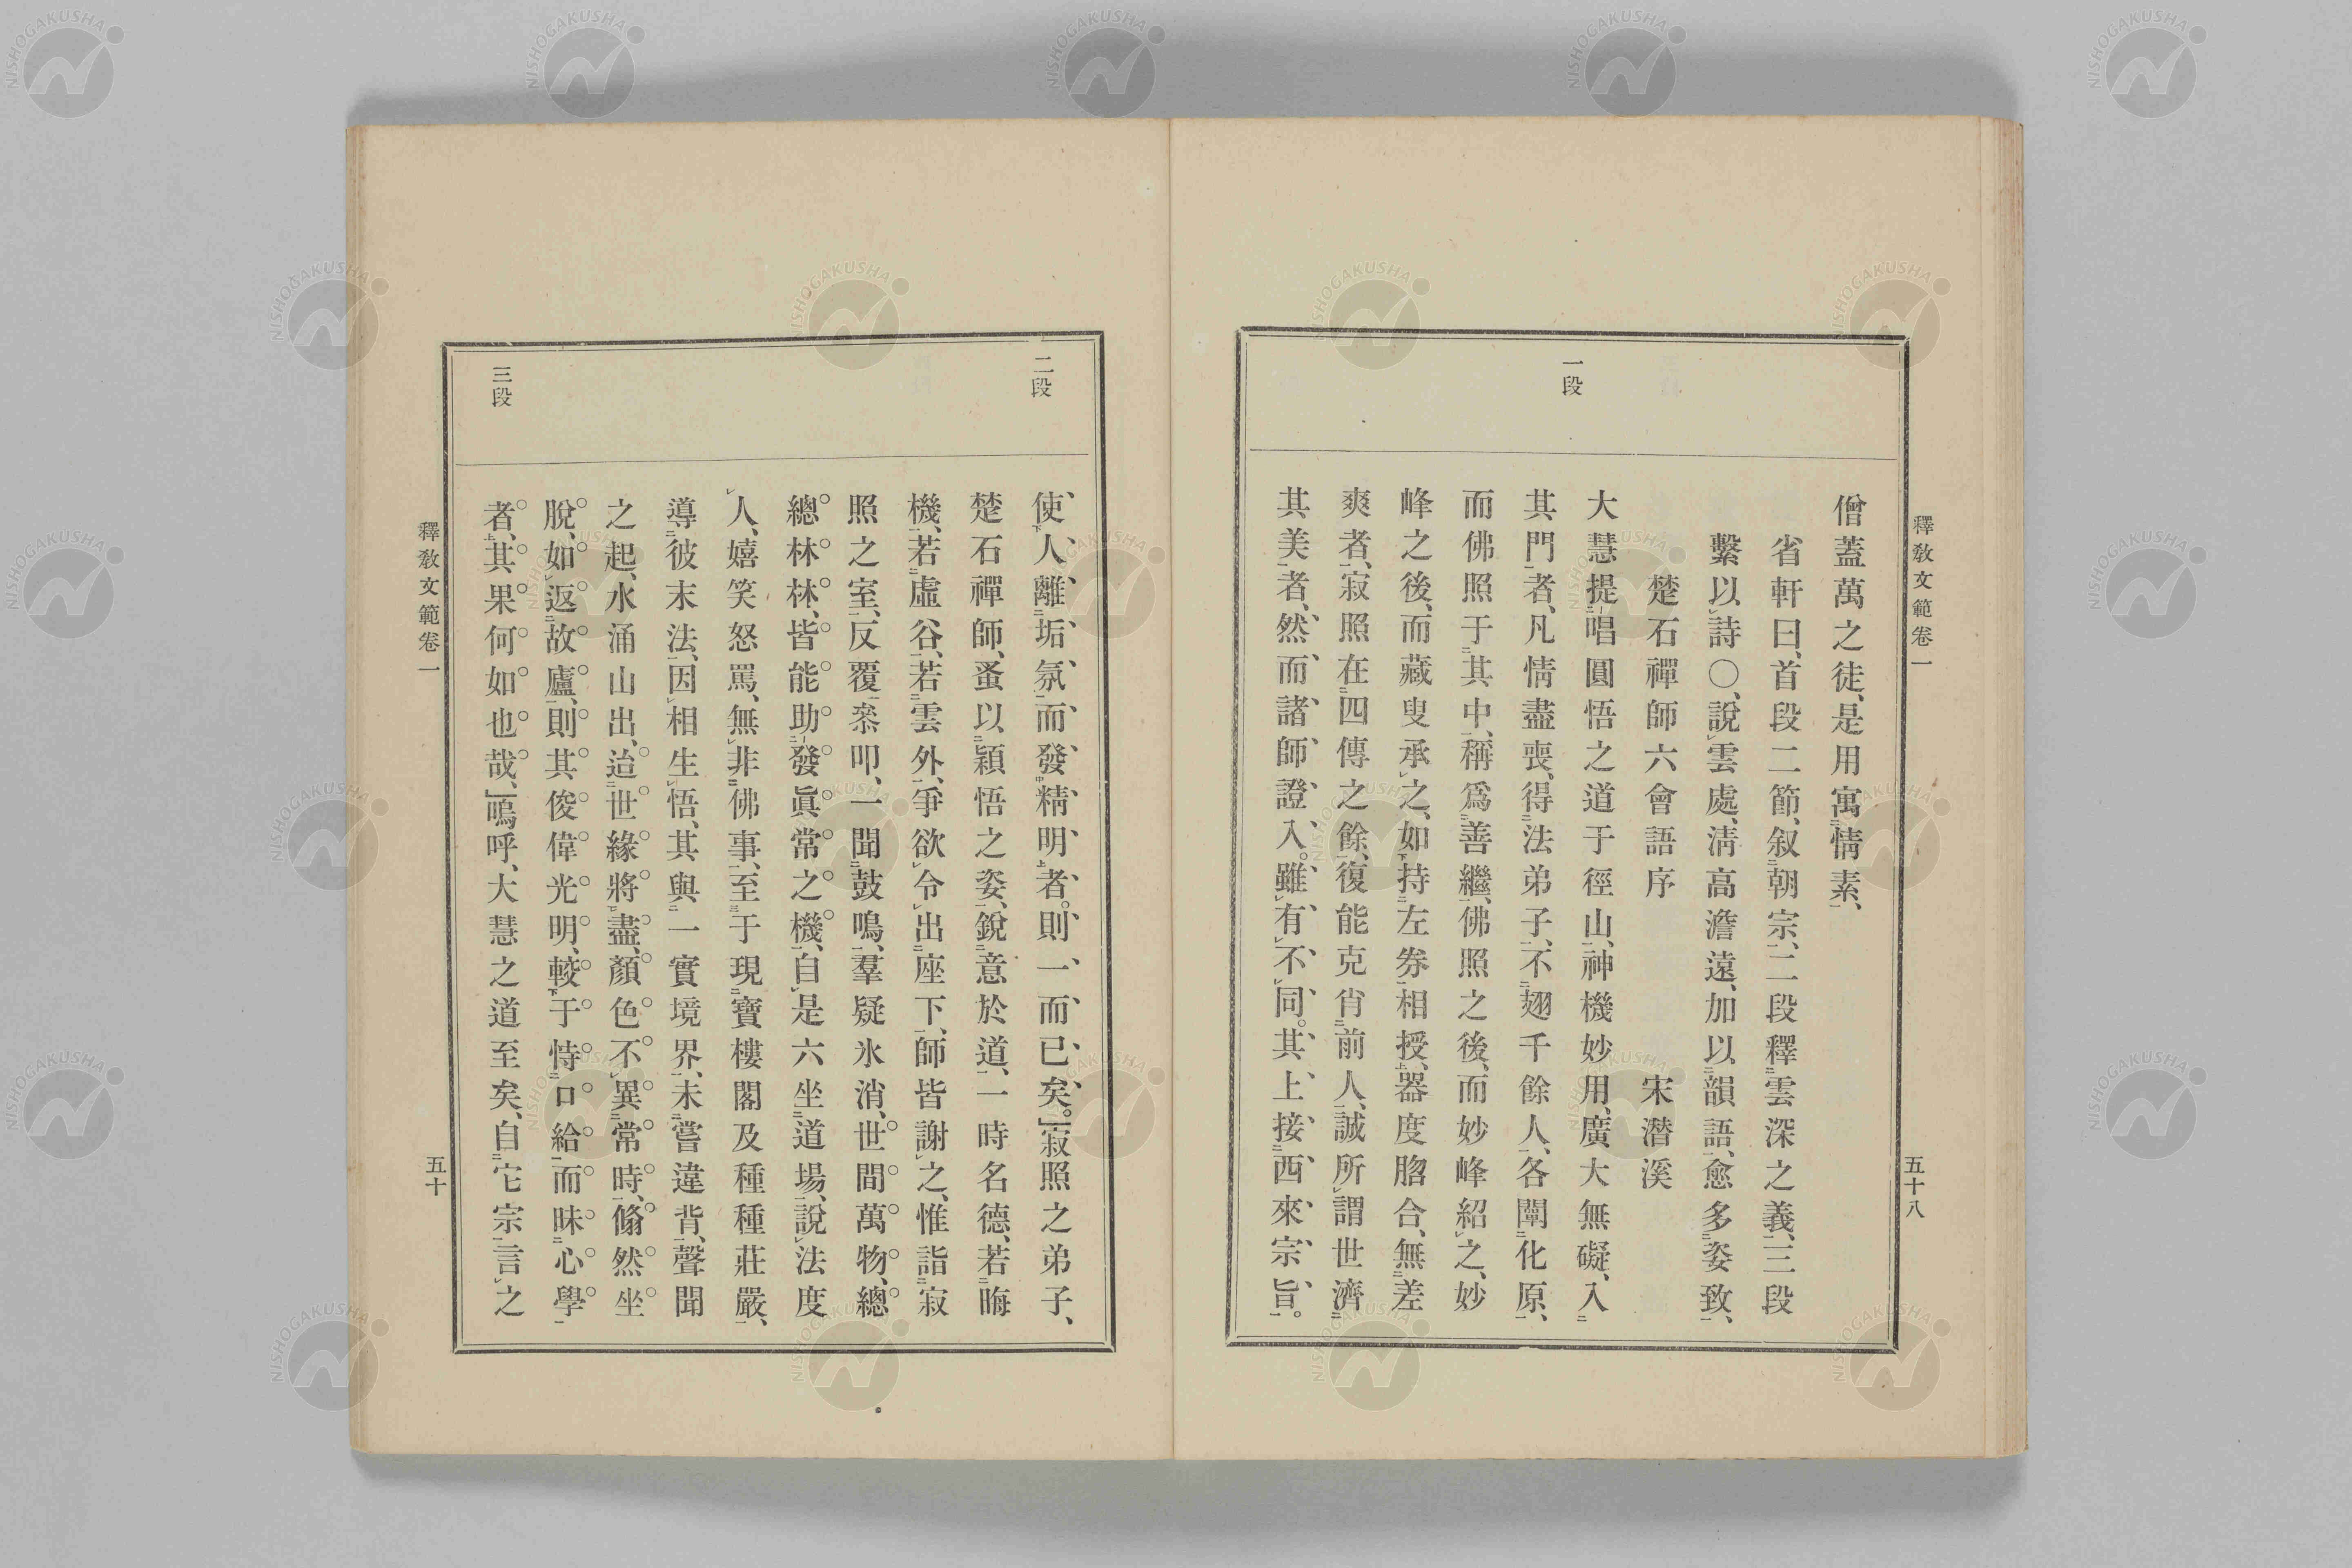 釋敎文範卷一
五十八
一段
僧蓋萬之徒、是用寓情素、
省軒曰、首段二節、叙朝宗、二段釋雲深之義、三段
繫以詩〇、說雲處、淸高澹遠、加以韻語、愈多姿致、
楚石禪師六會語序 宋潛溪
大慧提唱圓悟之道于徑山、神機妙用、廣大無礙、入
其門者、凡情盡喪、得法弟子、不翅千餘人、各闡化原、
而佛照于其中、稱爲善繼、佛照之後、而妙峰紹之、妙
峰之後、而藏叟承之、如持左券相授、器度脗合、無差
爽者、寂照在四傳之餘、復能克肖前人、誠所謂世濟
其美者、然而諸師證入。雖有不同。其上接西來宗旨。
二段
使人離垢氛、而發精明者。則一而已矣。」寂照之弟子、
楚石禪師、蚤以穎悟之姿、銳意於道、一時名德、若晦
機、若虛谷、若雲外、爭欲令出座下、師皆謝之、惟詣寂
照之室、反覆叅叩、一聞鼓鳴、羣疑氷消、世間萬物、總
總林林、皆能助發眞常之機、自是六坐道場、說法度
人、嬉笑怒罵、無非佛事、至于現寶樓閣及種種莊嚴、
導彼末法、因相生悟、其與一實境界、未嘗違背、聲聞
之起、水涌山出、迨世緣將盡、顏色不異常時、翛然坐
脫、如返故廬、則其俊偉光明、較于恃口給而昧心學
者、其果何如也哉、」嗚呼、大慧之道至矣、自它宗言之
三段
釋敎文範卷一
五十